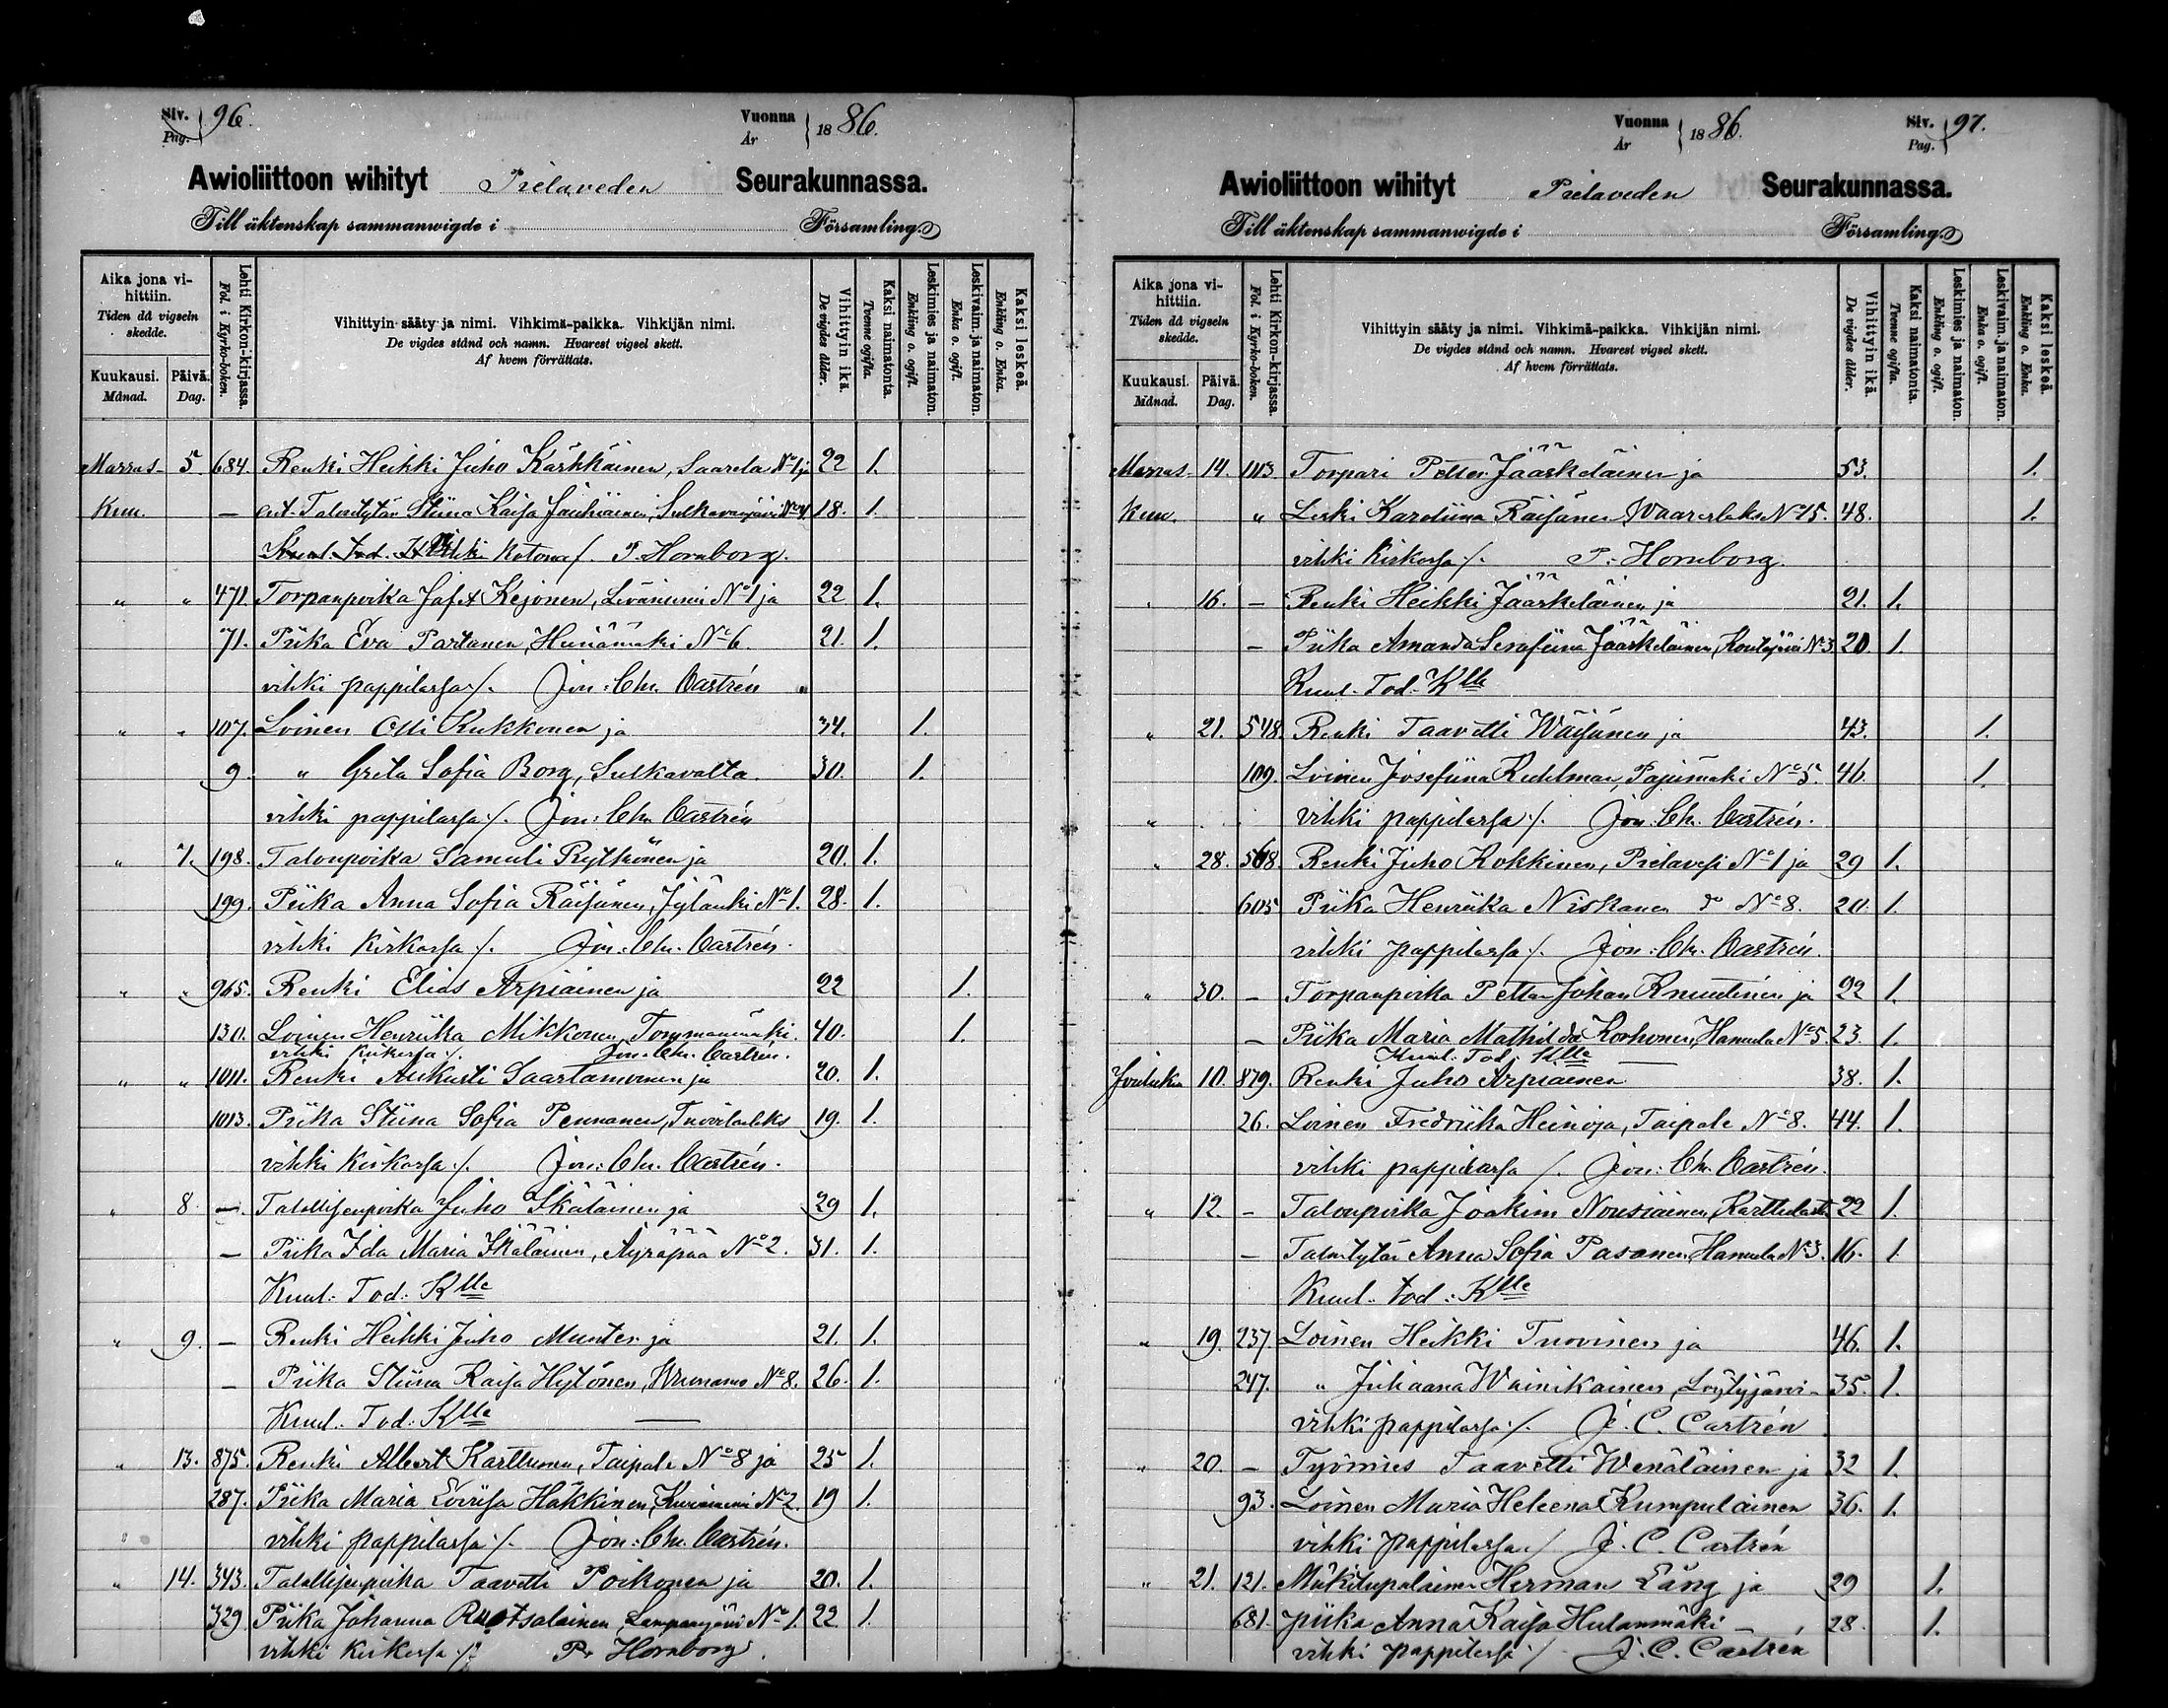 Siv. Pag. 96. Vuonna År 1886.
Awioliittoon wihityt Pielaveden Seurakunnassa.
Till äktenskap sammanwigde i Församling.
Aika jona vihittiin. Tiden då vigseln skedde.
Kuukausi. Månad. Päivä. Dag.
Lehti Kirkon-kirjassa. Fol. i Kyrko-boken.
Vihittyin sääty ja nimi. Vihkimä-paikka. Vihkijän nimi.
De vigdes stånd och namn. Hvarest vigsel skett.
Af hvem förrättats.
Vihittyin ikä. De vigdes ålder.
Kaksi naimatonta. Tvenne ogifta.
Leskimies ja naimaton. Enkling o. ogift.
Leskivaim. ja naimaton. Enka o. ogift.
Kaksi leskeä. Enkling o. Enka.
Marras- 5. 684. Renki Heikki Juho Kärkkäinen, Saarela No 1 ja 22 1.
Kuu. — Talontytär Stiina Kaisa Jauhiainen, Sulkavanjärvi 18. 1.
kotona /. P. Hornborg.
" " 471. Torpanpoika Jafet Kejonen, Livänniemi No 1 ja 22 1.
71. Piika Eva Partanen, No 6. 21. 1.
vihki pappilassa /. Jon: Chr. Castrén
" " 107. Loinen Olli Kukkonen ja 34. 1.
9. " Greta Sofia Borg, Sulkavalta. 30. 1.
vihki pappilassa /. Jon: Chr. Castrén
" 7. 198. Talonpoika Samuli Rytkönen ja 20. 1.
199. Piika Anna Sofia Räisänen, Jylänki No 1. 28. 1.
vihki Kirkossa /. Jon: Chr. Castrén.
" " 965. Renki Elias Arpiainen ja 22 1.
130. Loinen Henriika Mikkonen, Tommanmäki. 40. 1.
vihki kirkossa /. Jon: Chr. Castrén.
" " 1011. Renki Aukusti Saastamoinen ja 20. 1.
1013. Piika Stiina Sofia Pennanen, Tuovilanlaks 19. 1.
vihki Kirkossa /. Jon: Chr. Castrén.
" 8. — Talollisenpoika Juho Ikäläinen ja 29 1.
— Piika Ida Maria Ikäläinen, Äyräpää No 2. 31. 1.
Kuul. Tod: Klle
" 9. — Renki Heikki Juho Munter ja 21. 1.
— Piika Stiina Kaisa Hytönen, No 8. 26. 1.
Kuul. Tod: Klle —
" 13. 875. Renki Albert Karttunen, Taipale No 8 ja 25 1.
287. Piika Maria Loviisa Häkkinen, Kuivaniemi No 2. 19 1.
vihki pappilassa /. Jon: Chr. Castrén.
" 14. 343. Talollisenpoika Taavetti Poikonen ja 20. 1.
329 Piika Johanna Ruotsalainen, Lampaanjärvi No 1. 22 1.
vihki kirkossa /. P. Hornborg.
Vuonna År 1886. Siv. Pag. 97.
Awioliittoon wihityt Pielaveden Seurakunnassa.
Till äktenskap sammanwigde i Församling.
Aika jona vihittiin. Tiden då vigseln skedde.
Kuukausi. Månad. Päivä. Dag.
Lehti Kirkon-kirjassa. Fol. i Kyrko-boken.
Vihittyin sääty ja nimi. Vihkimä-paikka. Vihkijän nimi.
De vigdes stånd och namn. Hvarest vigsel skett.
Af hvem förrättats.
Vihittyin ikä. De vigdes ålder.
Kaksi naimatonta. Tvenne ogifta.
Leskimies ja naimaton. Enkling o. ogift.
Leskivaim. ja naimaton. Enka o. ogift.
Kaksi leskeä. Enkling o. Enka.
Marras. 14. 1113. Torpari Petter Jääskeläinen ja 53. 1.
Kuu. " Leski Karoliina Räisänen Waaraslaks No 15. 48. 1.
vihki Kirkossa /. P. Hornborg.
" 16. — Renki Heikki Jääskeläinen ja 21. 1.
— Piika Amanda Serafiina Jääskeläinen, Koutajärvi No 3 20. 1.
Kuul. Tod. Klle
" 21. 548. Renki Taavetti Wäisänen ja 43. 1.
109. Loinen Josefiina Kudelman, Pajumäki No 5. 46. 1.
" vihki pappilassa /. Jon: Chr. Castrén.
" 28. 568. Renki Juho Kokkinen, Pielavesi No 1 ja 29 1.
605 Piika Henriika Niskanen do No 8. 20. 1.
vihki pappilassa /. Jon: Chr. Castrén.
" 30. — Torpanpoika Petter Johan Knuutinen ja 22 1.
— Piika Maria Mathilda Korhonen, Hamula No 5. 23. 1.
Kuul. Tod. Klle —
Jouluku 10. 879. Renki Juho Arpiainen 38. 1.
26. Loinen Fredriika Heinoja, Taipale No 8. 44. 1.
vihki pappilassa /. Jon: Chr. Castrén.
" 12. — Talonpoika Joakim Nousiainen, Karttulasta 22 1.
— Talontytär Anna Sofia Pasanen, Hamula No 3. 16. 1.
Kuul. tod: Klle
" 19. 237. Loinen Heikki Tuovinen ja 46. 1.
247. " Juliaana Wainikainen, Löytyjärvi 35. 1.
vihki pappilassa /. J. C. Castrén
" 20. — Työmies Taavetti Wenäläinen ja 32 1.
93. Loinen Maria Heleena Kumpulainen 36. 1.
vihki pappilassa / J. C. Castrén
" 21. 121. Mäkitupalainen Herman Läng ja 29 1.
681. piika Anna Kaisa Hulanmäki — 28. 1.
vihki pappilassa / J. C. Castrén